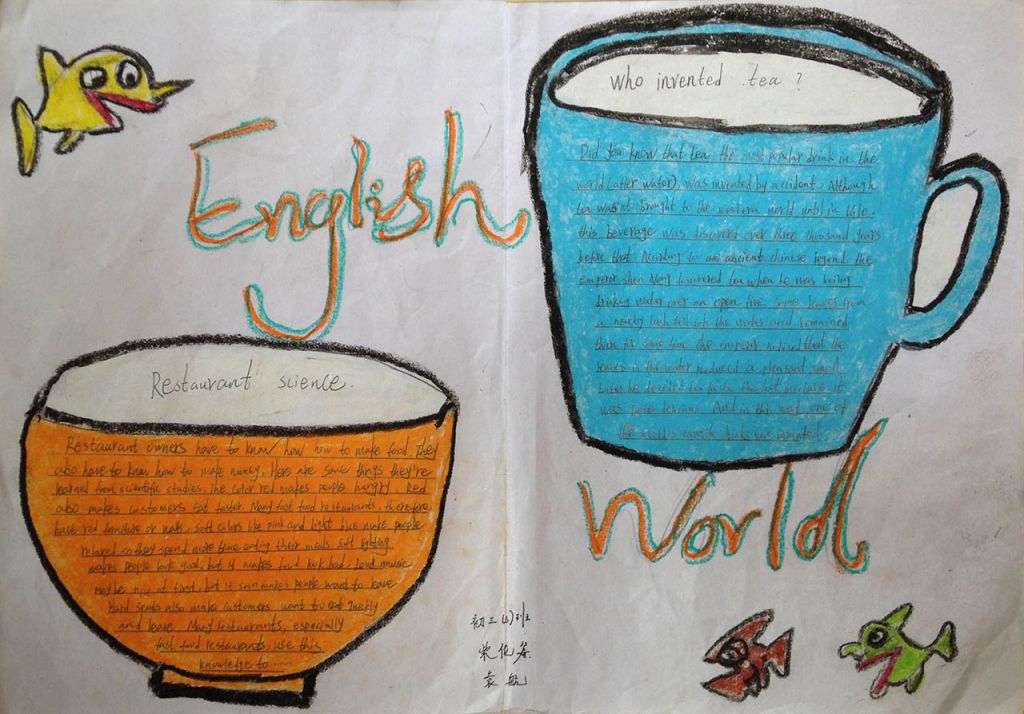 English
Who invented tea?
Did you know that tea, the most popular drink in the
world (after water), was invented by accident. Although
tea wasn't brought to the western world until in 1610.
this beverage was discovered over three thousand years
before that. According to an ancient chinese legend. the
emperor shen Nong discovered tea when he was
drinking water over an open fire. Some leaves from
a nearby fell into the water and remained
there for some time. the emperor noticed that the
leaves in the water produced a pleasant smell.
Later he decided to taste the hot mixture. it
was quite And in this way, one of
the world's favorite drinks was invented
Restaurant science.
Restaurant owners have to know how how to make food. they
also have to know how to make money. Here are some things they're
learned from scientific studies. the color red makes people hungry. Red
also makes customers eat faster. Many fast food restaurants, therefore,
have red furniture or walls. soft colors like pink and light blue make people
relaxed so they spend more time eating their meals. soft lighting
makes people look good, but it makes food look bad. Loud music
may be nice at first, but it soon makes people want to leave
Hard seats also make customers want to eat quickly
and leave. Many restaurants, especially
fast food restaurants, use this
knowledge to ......
World
初三班
袁航